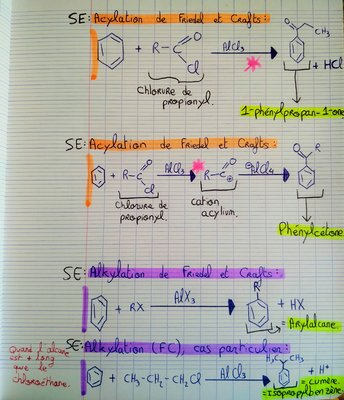 SE: Acylation de Friedel et Crafts:
O
CH₃
+ R-C O Cl AlCl₃ + HCl
Chlorure de
propionyl.
1-phénylpropan-1-one
SE: Acylation de Friedel et Crafts:
O R
+ R-C O Cl AlCl₃ R-C O ⊕ ⊖AlCl₄
Chlorure de
propionyl.
cation
acylium.
Phénylcétone
SE: Alkylation de Friedel et Crafts:
R
+ RX AlX₃ + HX
= Arylalcane.
SE: Alkylation (FC), cas particulier:
Quand l'alcane
est + long
que le
chloroéthane.
H₃C CH₃
+ CH₃-CH₂-CH₂Cl AlCl₃ + H⁺
= cumène.
= isopropylbenzène.